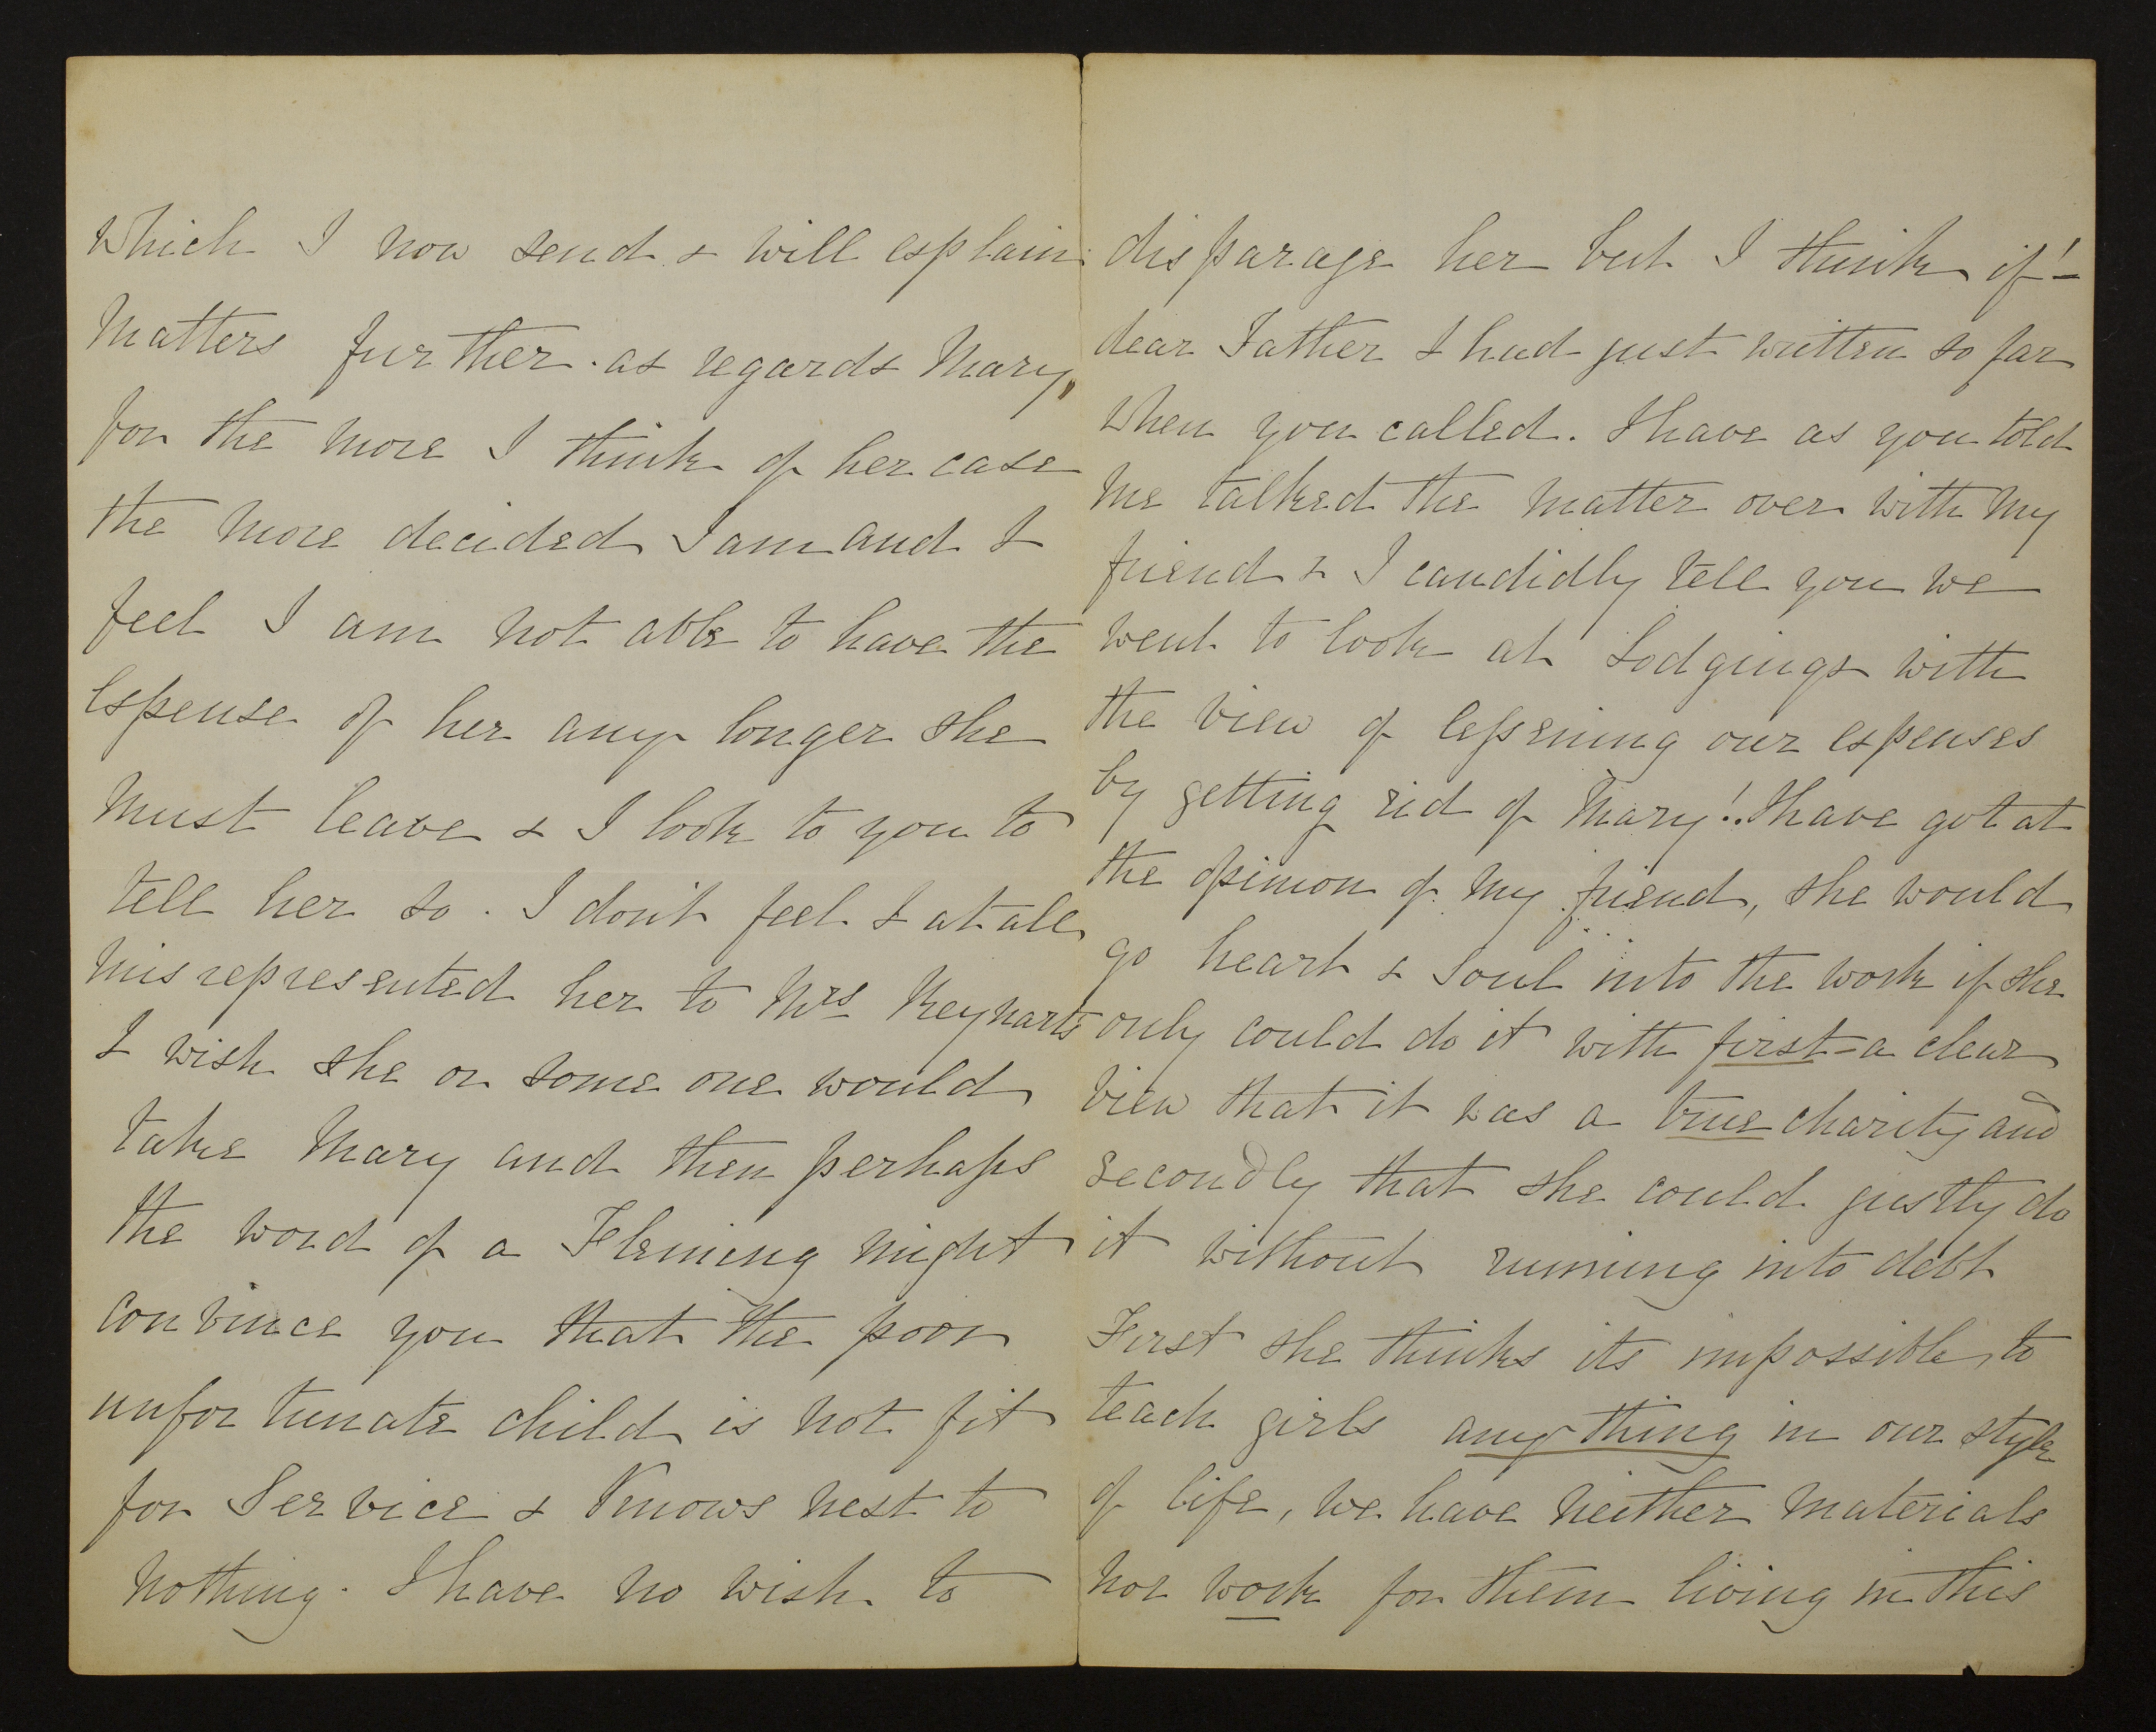 which I now send & will explain
matters further. as regards Mary,
for the more I think of her case
the more decided I am and I
feel I am not able to have the
expense of her any longer she
must leave & I look to you to
tell her so. I don't feel I at all
misrepresented her to Mrs
I wish she or some one would
take Mary and then perhaps
the word of a Fleming might
convince you that the poor
unfortunate child is not fit
for Service & Knows next to
nothing. I have no wish to
disparage her but I think if!—
dear Father I had just written so far
when you called. I have as you told
me talked the matter over with my
friend & I candidly tell you we
went to look at Lodgings with
the view of lessening our expenses
by getting rid of Mary!! I have got at
the opinion of my friend, she would
go heart & soul into the work if she
only could do it with first - a clear
view that it was a true charity and
secondly that she could justly do
it without running into debt
First she thinks its impossible to
teach girls anything in our style
of life, we have neither materials
nor work for them living in this